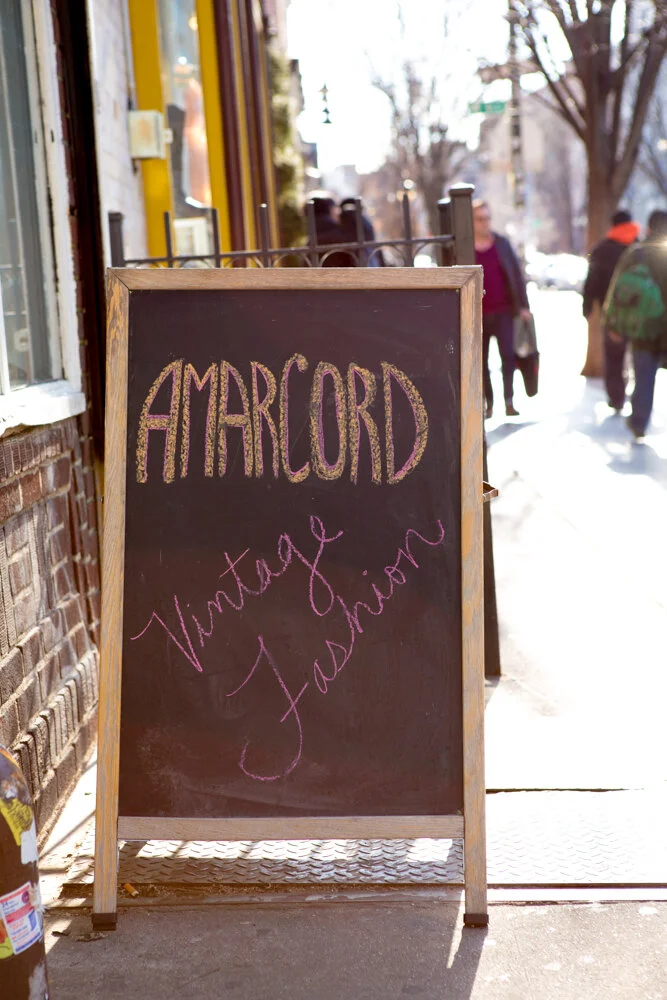 AMARCORD
Vintage
Fashion